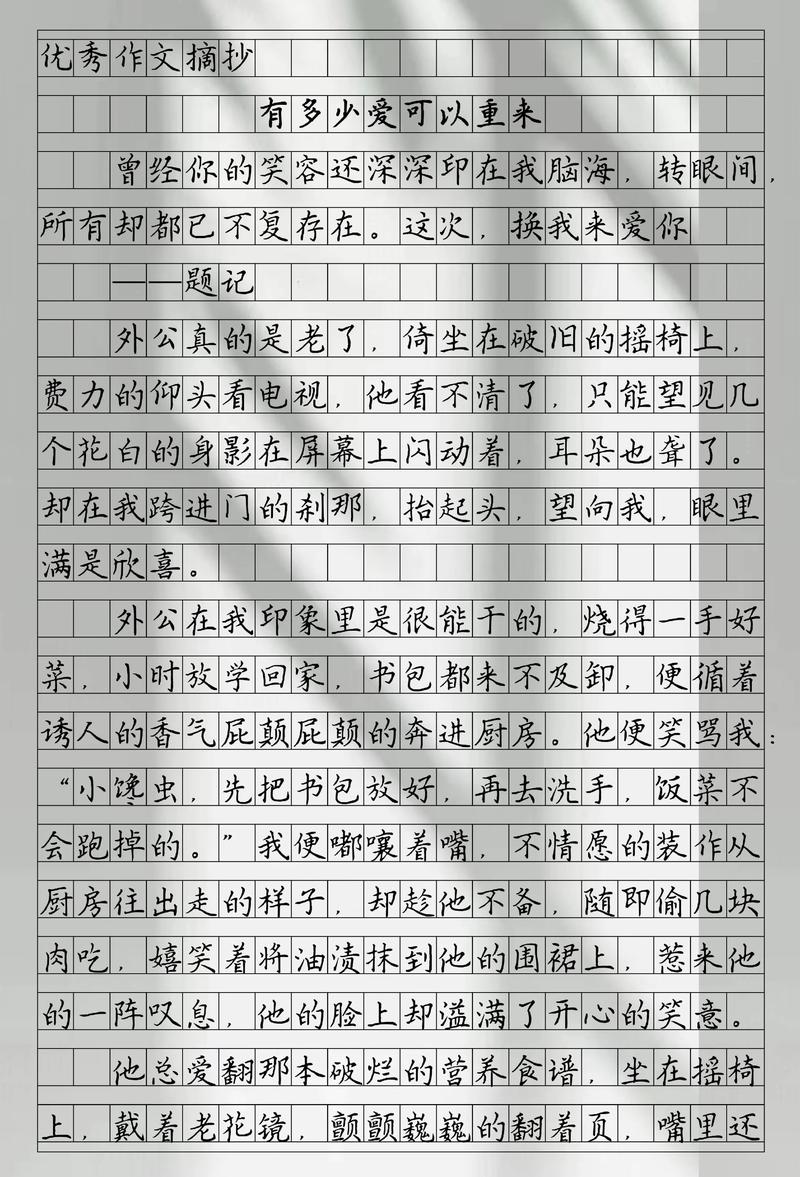 优秀作文摘抄
有多少爱可以重来
曾经你的笑容还深深印在我脑海，转眼间，
所有却都已不复存在。这次，换我来爱你
——题记
外公真的是老了，倚坐在破旧的摇椅上，
费力的仰头看电视，他看不清了，只能望见几
个花白的身影在屏幕上闪动着，耳朵也聋了。
却在我跨进门的刹那，抬起头，望向我，眼里
满是欣喜。
外公在我印象里是很能干的，烧得一手好
菜，小时放学回家，书包都来不及卸，便循着
诱人的香气屁颠屁颠的奔进厨房。他便笑骂我：
“小馋虫，先把书包放好，再去洗手，饭菜不
会跑掉的。”我便嘟嚷着嘴，不情愿的装作从
厨房往出走的样子，却趁他不备，随即偷几块
肉吃，嬉笑着将油渍抹到他的围裙上，惹来他
的一阵叹息，他的脸上却溢满了开心的笑意。
他总爱翻那本破烂的营养食谱，坐在摇椅
上，戴着老花镜，颤颤巍巍的翻着页，嘴里还